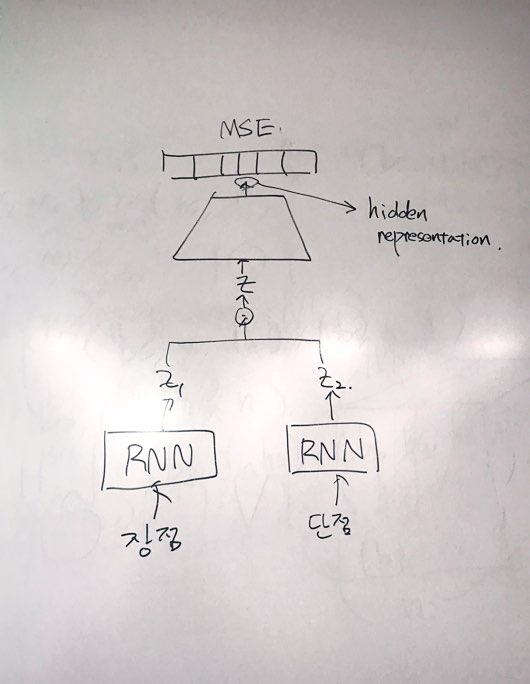 MSE.
hidden
representation.
Z
Z1
Z2.
RNN
RNN
장점
단점